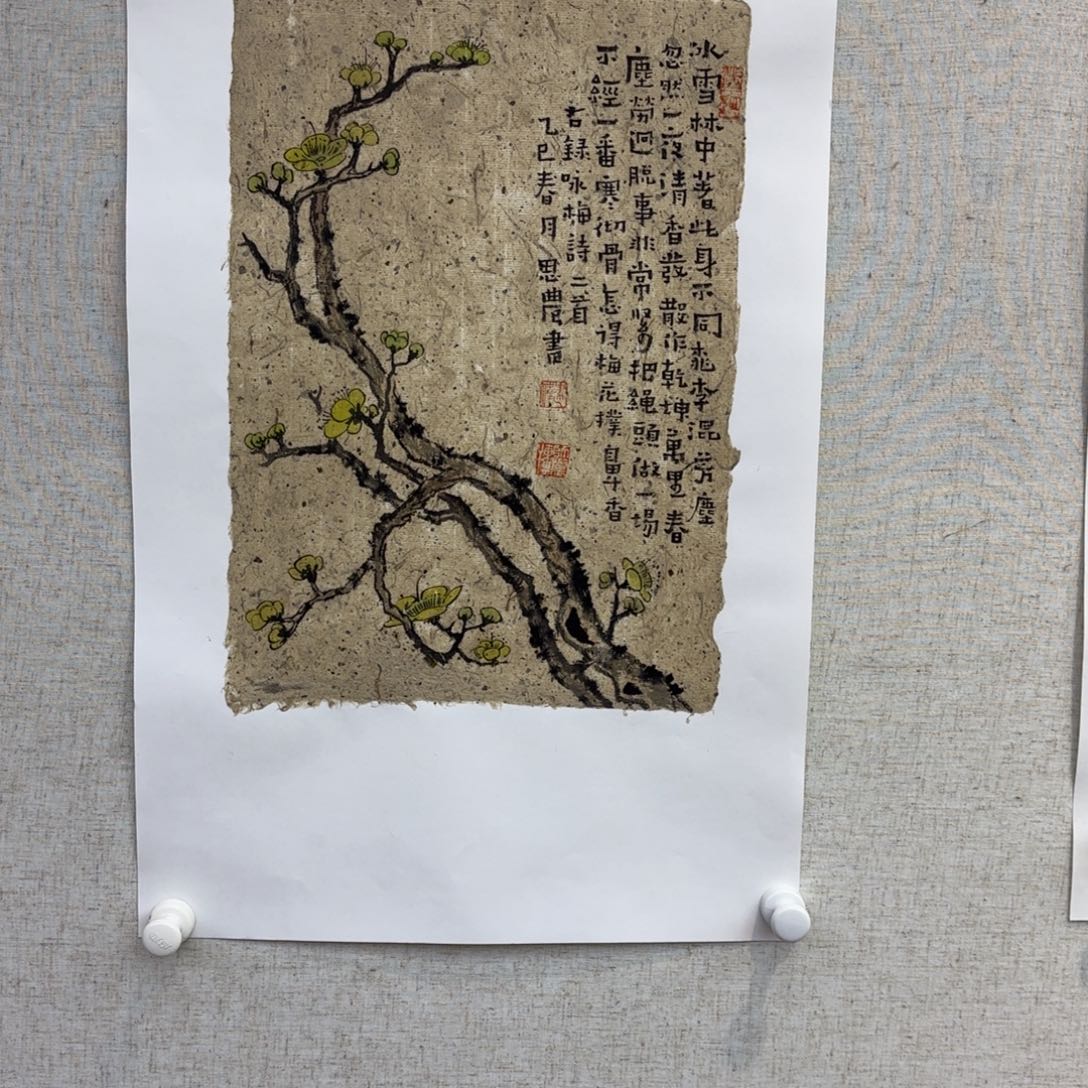 冰雪林中著此身不同桃李混芳塵
忽然一夜清香發散作乾坤萬里春
塵勞迥脫事非常緊把繩頭做一場
不經一番寒彻骨怎得梅花撲鼻香
右録咏梅詩二首
乙巳春月思農書